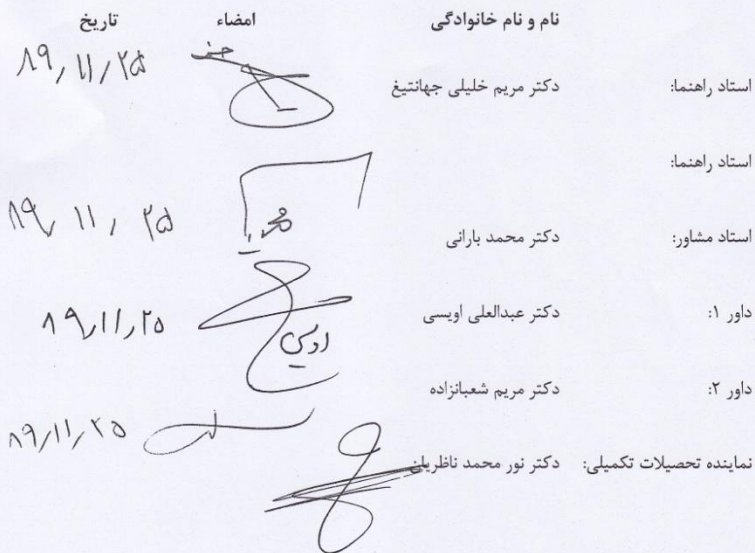 نام و نام خانوادگی امضاء تاریخ
استاد راهنما: دکتر مریم خلیلی جهانتیغ ۸۹/۱۱/۲۵
استاد راهنما:
استاد مشاور: دکتر محمد بارانی ۸۹/۱۱/۲۵
داور ۱: دکتر عبدالعلی اویسی اویسی ۸۹/۱۱/۲۵
داور ۲: دکتر مریم شعبانزاده ۸۹/۱۱/۲۵
نماینده تحصیلات تکمیلی: دکتر نور محمد ناظریان